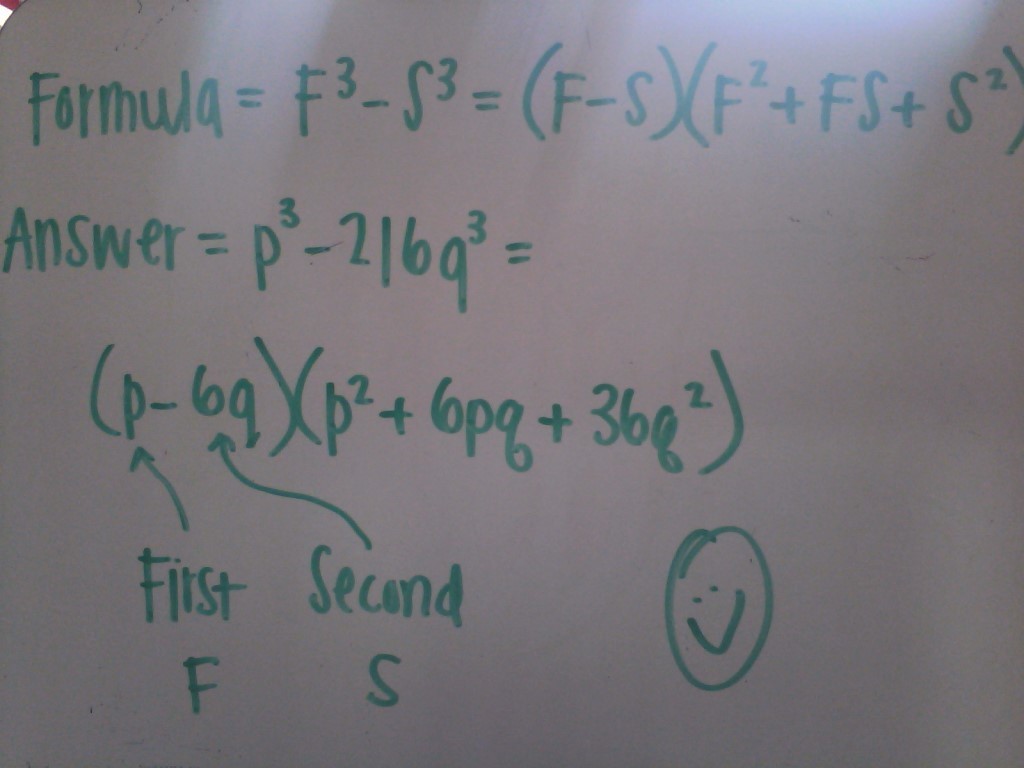 Formula = F³ - S³ = (F-S)(F² + FS + S²)
Answer = p³ - 216q³ =
(p - 6q)(p² + 6pq + 36q²)
First Second
F S